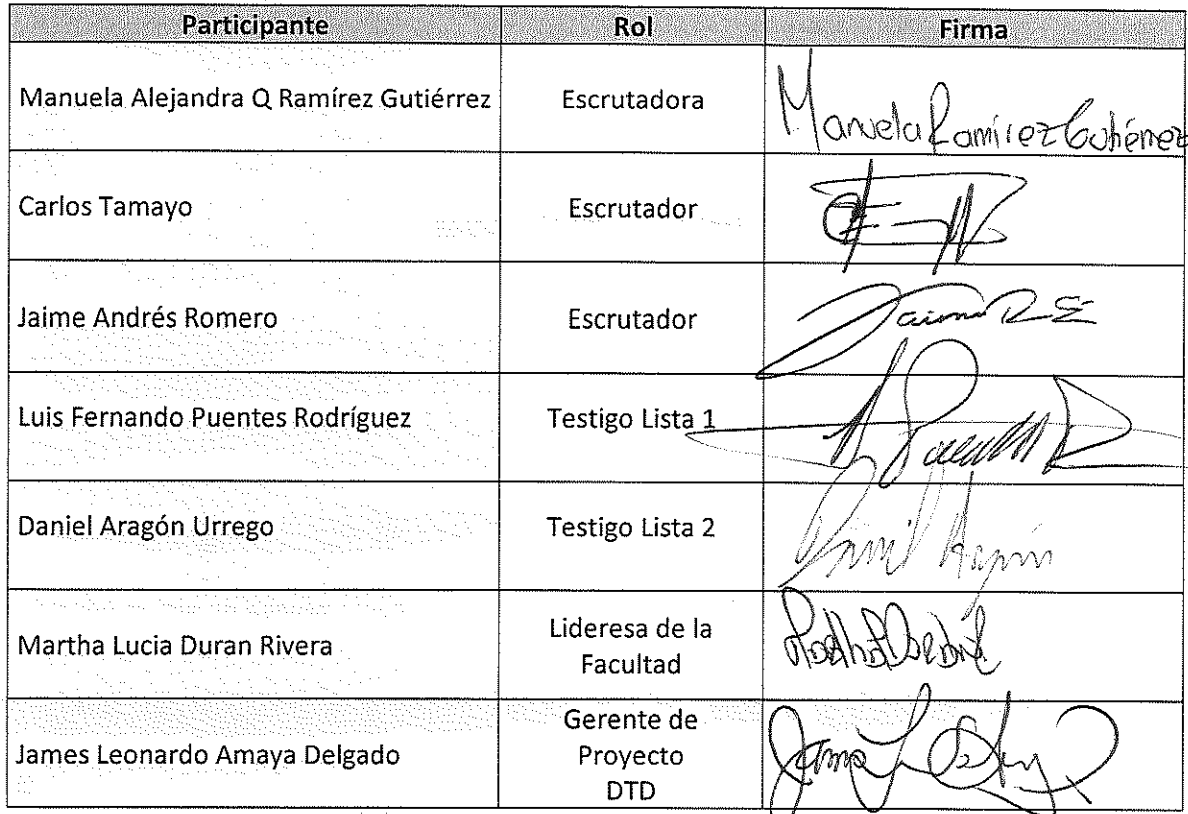 Participante Rol Firma
Manuela Alejandra Q Ramírez Gutiérrez Escrutadora Manuela Ramírez Gutiérrez
Carlos Tamayo Escrutador
Jaime Andrés Romero Escrutador Jaime
Luis Fernando Puentes Rodríguez Testigo Lista 1
Daniel Aragón Urrego Testigo Lista 2 Daniel Aragón
Martha Lucia Duran Rivera Lideresa de la
Facultad
James Leonardo Amaya Delgado Gerente de
Proyecto
DTD